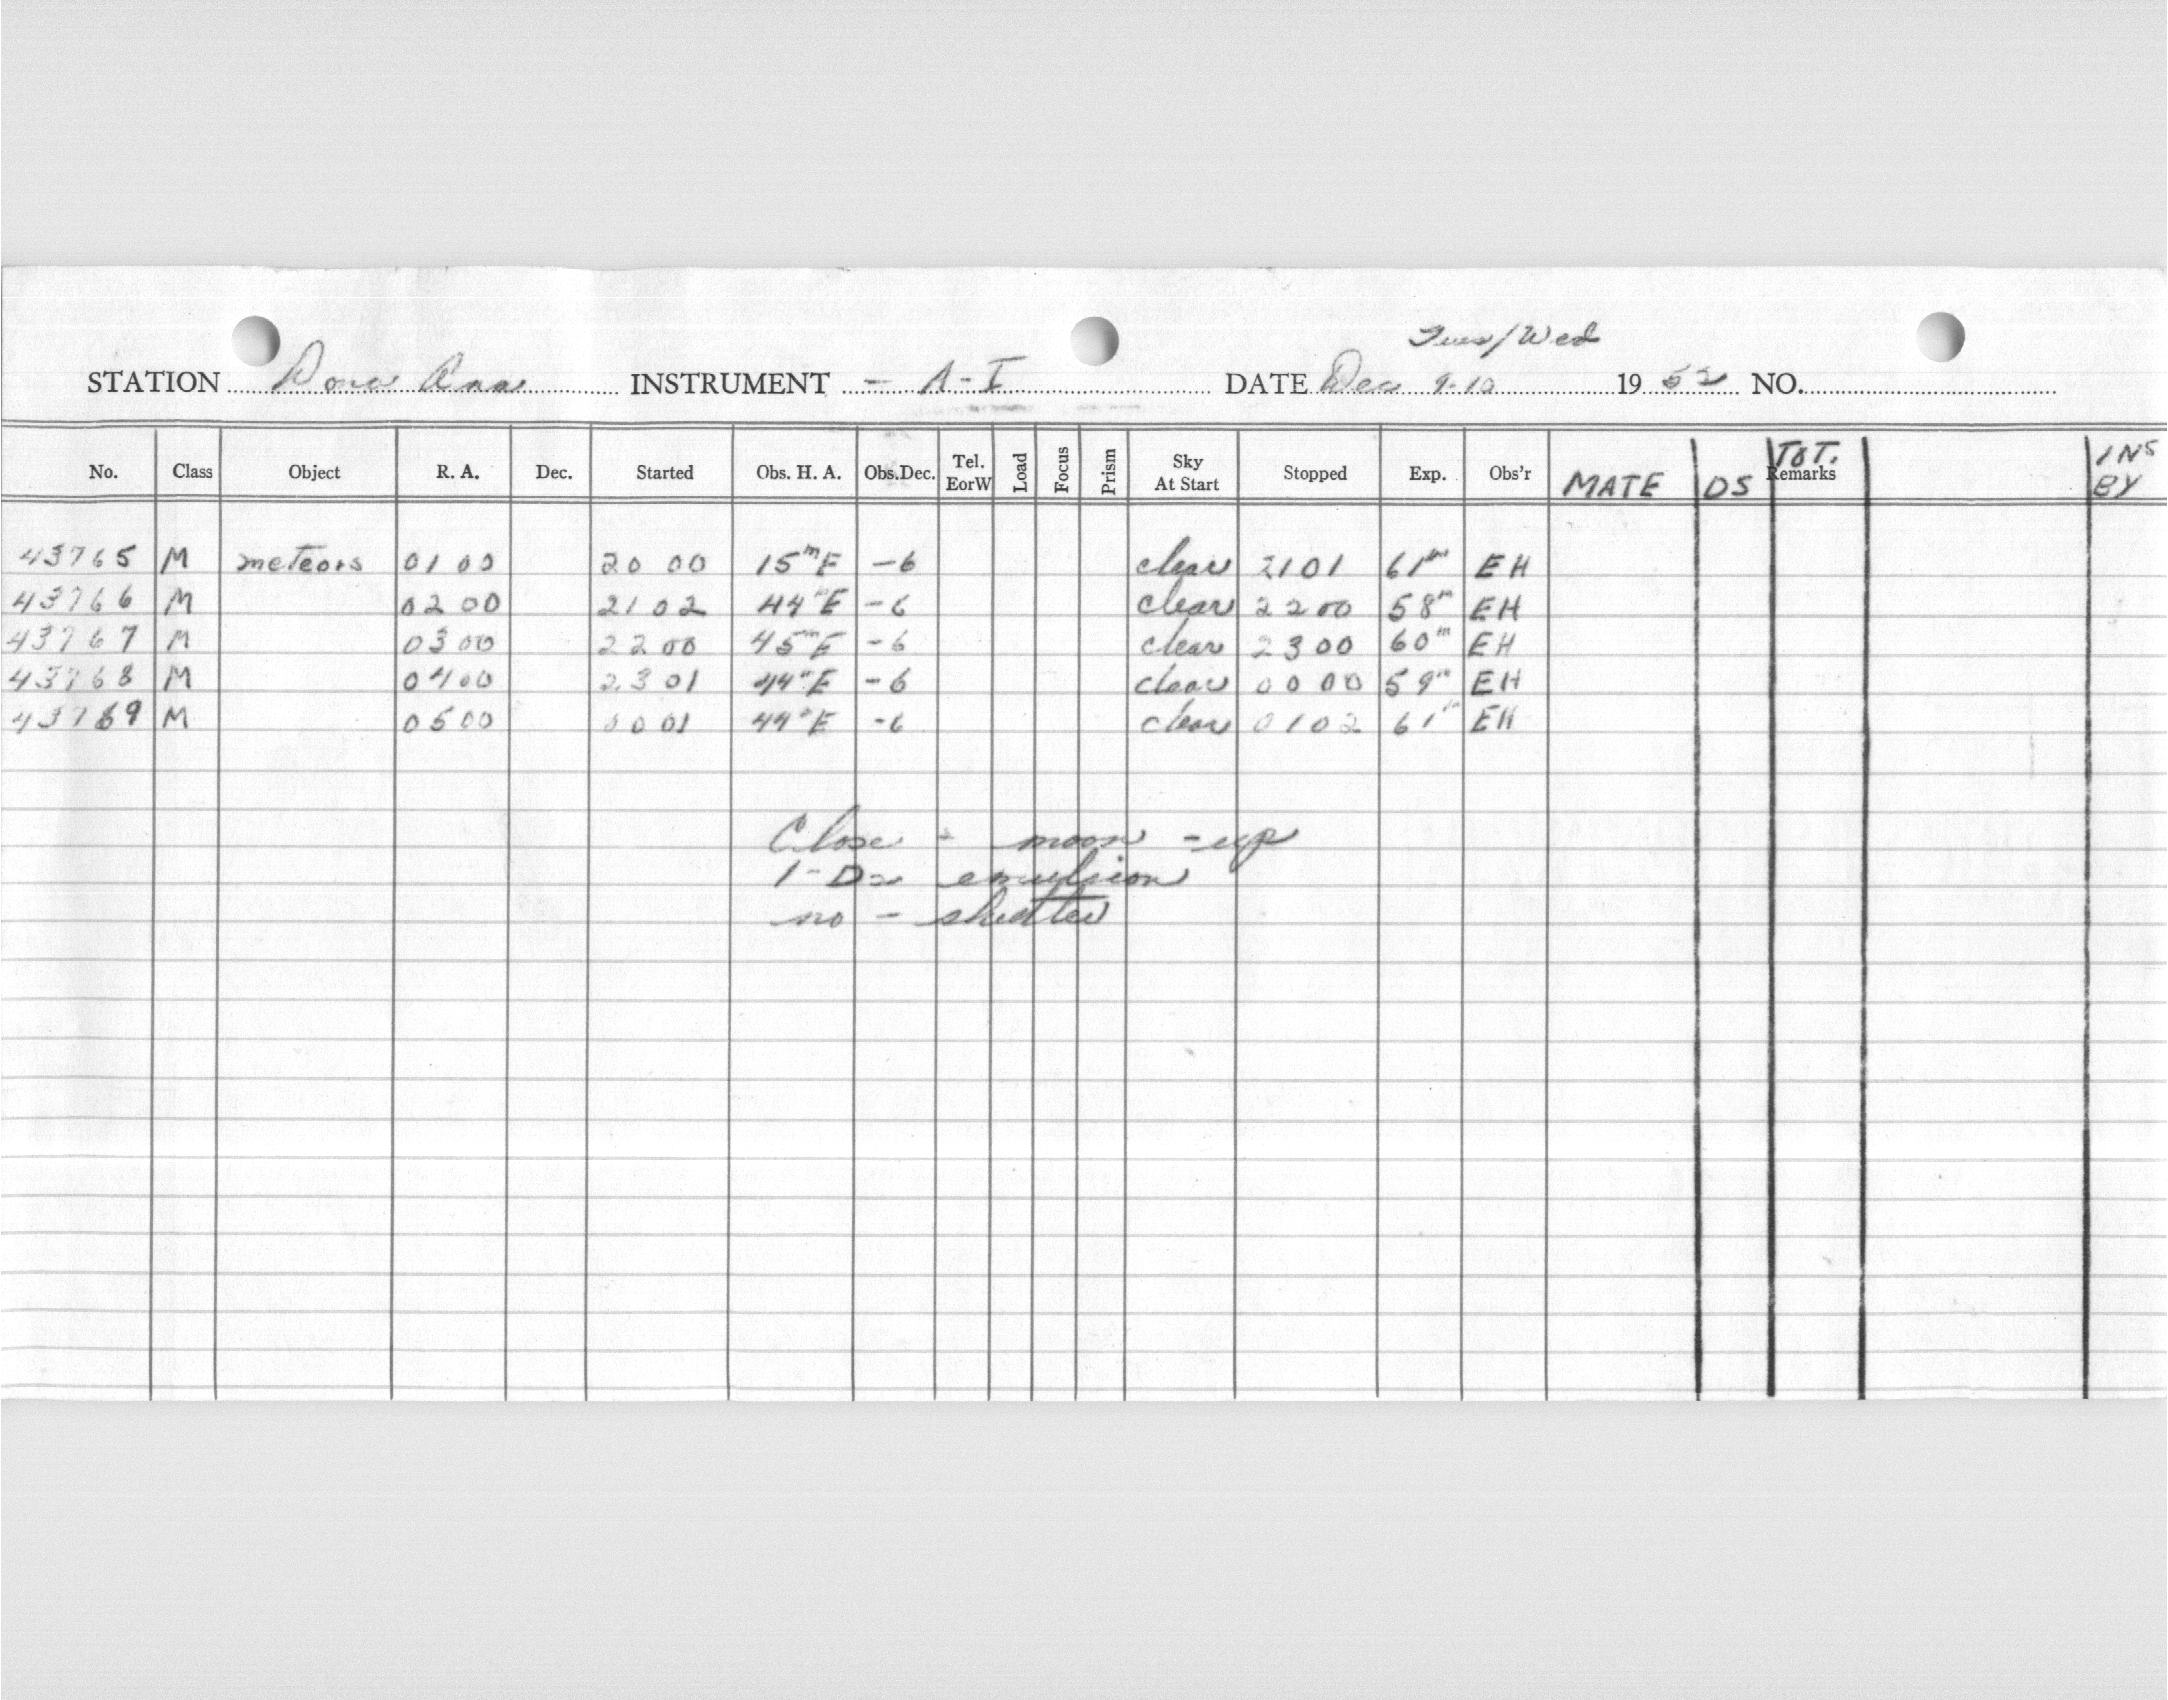 Tues/Wed
STATION Dona Ana INSTRUMENT - A-I DATE Dec 9-10 19 52 NO.
No. Class Object R. A. Dec. Started Obs. H. A. Obs.Dec. Tel. EorW Load Focus Prism Sky At Start Stopped Exp. Obs'r MATE DS TOT. Remarks INS BY
43765 M meteors 01 00 20 00 15ᵐE -6 clear 2101 61ᵐ EH
43766 M 02 00 21 02 44ᵐE -6 clear 2200 58ᵐ EH
43767 M 03 00 22 00 45ᵐE -6 clear 2300 60ᵐ EH
43768 M 04 00 23 01 44ᵐE -6 clear 0000 59ᵐ EH
43769 M 05 00 00 01 44ᵐE -6 clear 0102 61ᵐ EH
Close - moon - up
emulsion
no - shutter